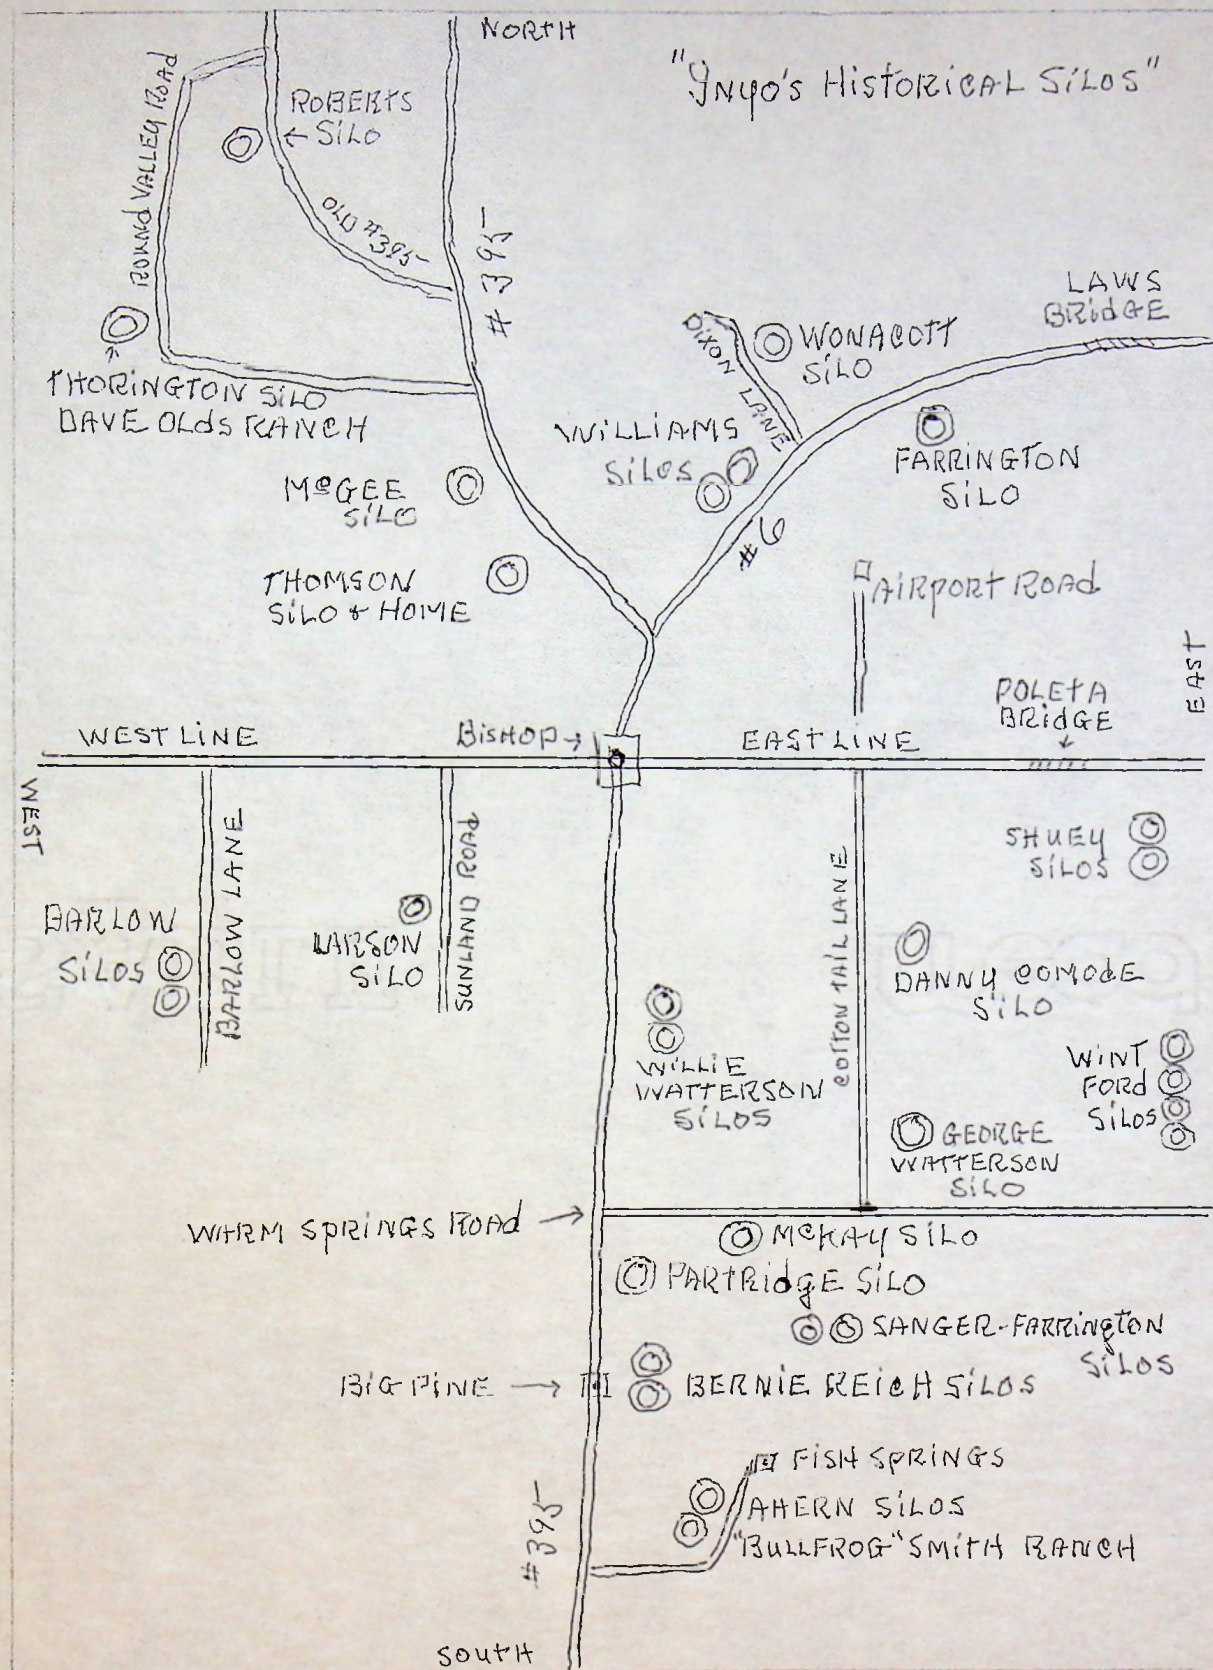 NORTH
"INYO'S HISTORICAL SILOS"
ROUND VALLEY ROAD
ROBERTS
SILO
OLD #395
#395
LAWS
BRIDGE
DIXON LANE
WONACOTT
SILO
THORINGTON SILO
DAVE OLDS RANCH
WILLIAMS
SILOS
FARRINGTON
SILO
McGEE
SILO
#6
THOMSON
SILO & HOME
AIRPORT ROAD
EAST
POLETA
BRIDGE
WEST LINE
BISHOP
EAST LINE
WEST
BARLOW LANE
SUNLAND ROAD
COTTON TAIL LANE
SHUEY
SILOS
BARLOW
SILOS
LARSON
SILO
DANNY COMODE
SILO
WILLIE
WATTERSON
SILOS
WINT
FORD
SILOS
GEORGE
WATTERSON
SILO
WARM SPRINGS ROAD
McKAY SILO
PARTRIDGE SILO
SANGER-FARRINGTON
SILOS
BIG PINE
BERNIE REICH SILOS
FISH SPRINGS
AHERN SILOS
"BULLFROG" SMITH RANCH
#395
SOUTH